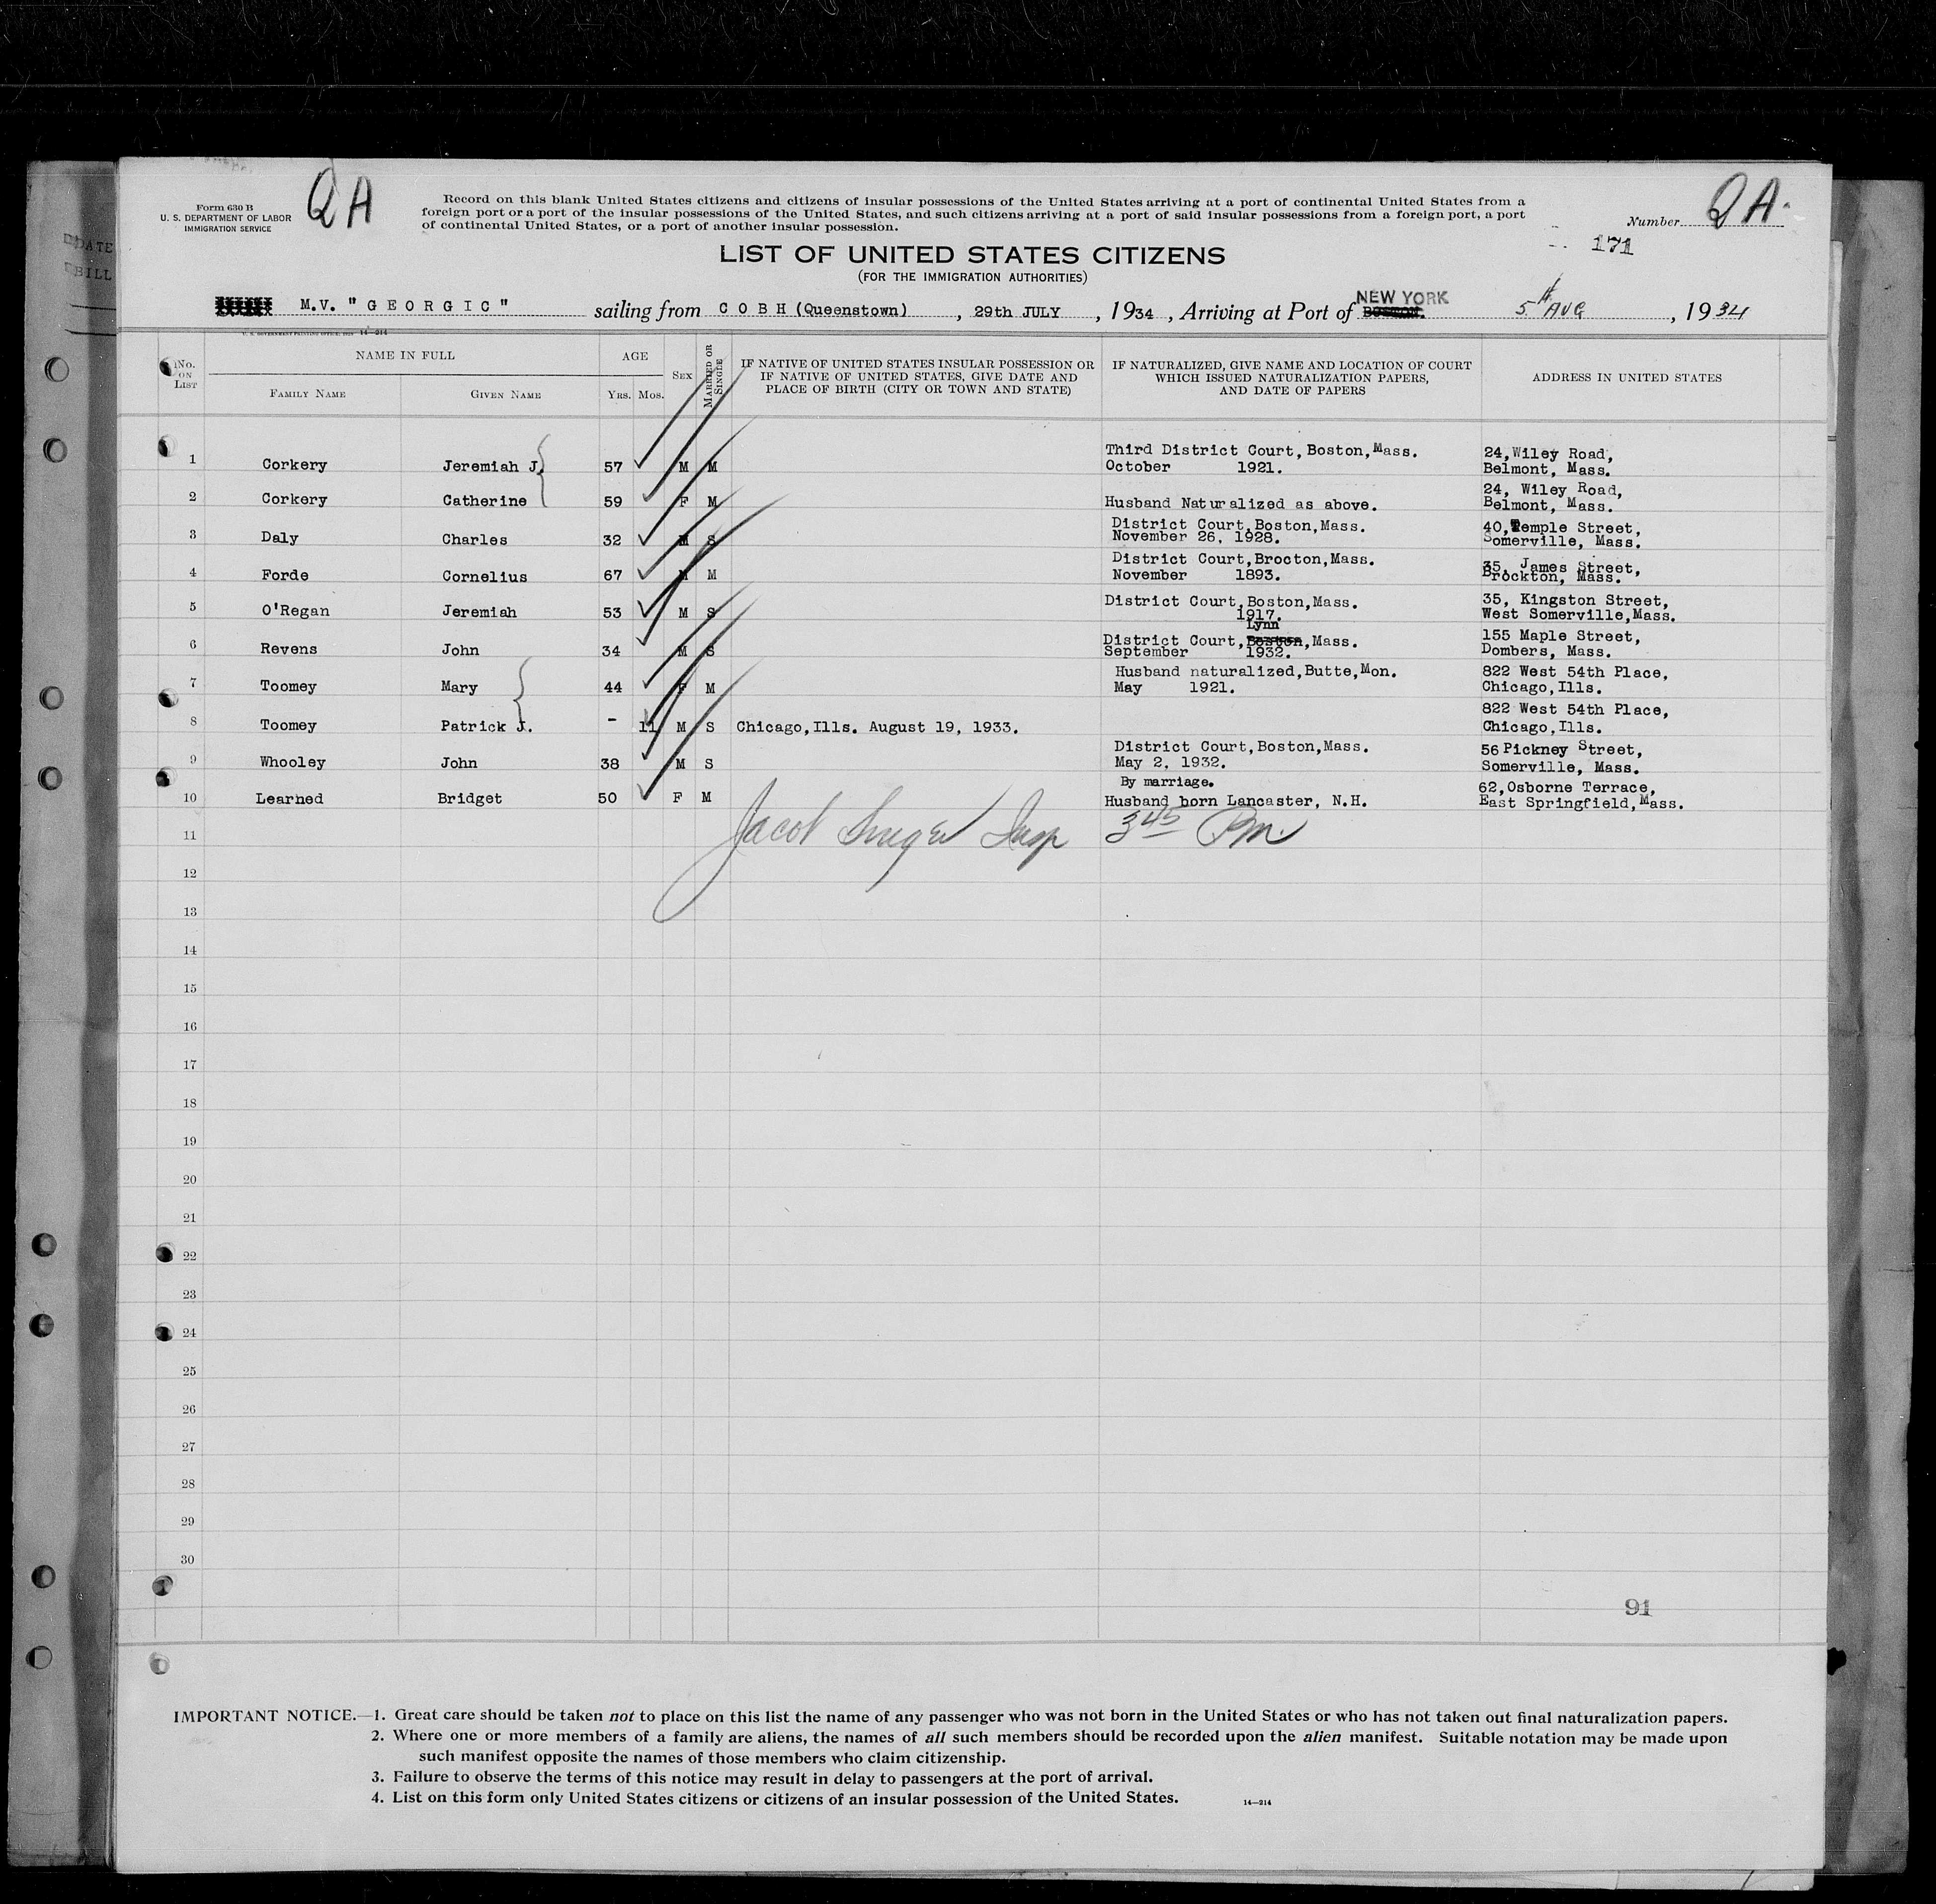 Form 630 B
U. S. DEPARTMENT OF LABOR
IMMIGRATION SERVICE
QA
Record on this blank United States citizens and citizens of insular possessions of the United States arriving at a port of continental United States from a
foreign port or a port of the insular possessions of the United States, and such citizens arriving at a port of said insular possessions from a foreign port, a port
of continental United States, or a port of another insular possession.
Number QA.
171
LIST OF UNITED STATES CITIZENS
(FOR THE IMMIGRATION AUTHORITIES)
M.V. "GEORGIC" sailing from COBH (Queenstown), 29th JULY, 1934, Arriving at Port of NEW YORK 5th AUG, 1934
U. S. GOVERNMENT PRINTING OFFICE: 14—214
DATE
BILL
No. ON LIST
NAME IN FULL
FAMILY NAME GIVEN NAME
AGE
YRS. MOS.
SEX
MARRIED OR SINGLE
IF NATIVE OF UNITED STATES INSULAR POSSESSION OR
IF NATIVE OF UNITED STATES, GIVE DATE AND
PLACE OF BIRTH (CITY OR TOWN AND STATE)
IF NATURALIZED, GIVE NAME AND LOCATION OF COURT
WHICH ISSUED NATURALIZATION PAPERS,
AND DATE OF PAPERS
ADDRESS IN UNITED STATES
1 Corkery Jeremiah J. 57 M M Third District Court, Boston, Mass.
October 1921.
24, Wiley Road,
Belmont, Mass.
2 Corkery Catherine 59 F M Husband Naturalized as above.
24, Wiley Road,
Belmont, Mass.
3 Daly Charles 32 M S District Court, Boston, Mass.
November 26, 1928.
40, Temple Street,
Somerville, Mass.
4 Forde Cornelius 67 M M District Court, Brocton, Mass.
November 1893.
35, James Street,
Brockton, Mass.
5 O'Regan Jeremiah 53 M S District Court, Boston, Mass.
1917.
35, Kingston Street,
West Somerville, Mass.
6 Revens John 34 M S Lynn
District Court, Boston, Mass.
September 1932.
155 Maple Street,
Dombers, Mass.
7 Toomey Mary 44 F M Husband naturalized, Butte, Mon.
May 1921.
822 West 54th Place,
Chicago, Ills.
8 Toomey Patrick J. - 11 M S Chicago, Ills. August 19, 1933.
822 West 54th Place,
Chicago, Ills.
9 Whooley John 38 M S District Court, Boston, Mass.
May 2, 1932.
56 Pickney Street,
Somerville, Mass.
10 Learned Bridget 50 F M By marriage.
Husband born Lancaster, N.H.
62, Osborne Terrace,
East Springfield, Mass.
11 Jacob Insp 3 45 Pm.
12
13
14
15
16
17
18
19
20
21
22
23
24
25
26
27
28
29
30
91
IMPORTANT NOTICE.—1. Great care should be taken not to place on this list the name of any passenger who was not born in the United States or who has not taken out final naturalization papers.
2. Where one or more members of a family are aliens, the names of all such members should be recorded upon the alien manifest. Suitable notation may be made upon
such manifest opposite the names of those members who claim citizenship.
3. Failure to observe the terms of this notice may result in delay to passengers at the port of arrival.
4. List on this form only United States citizens or citizens of an insular possession of the United States.
14—214